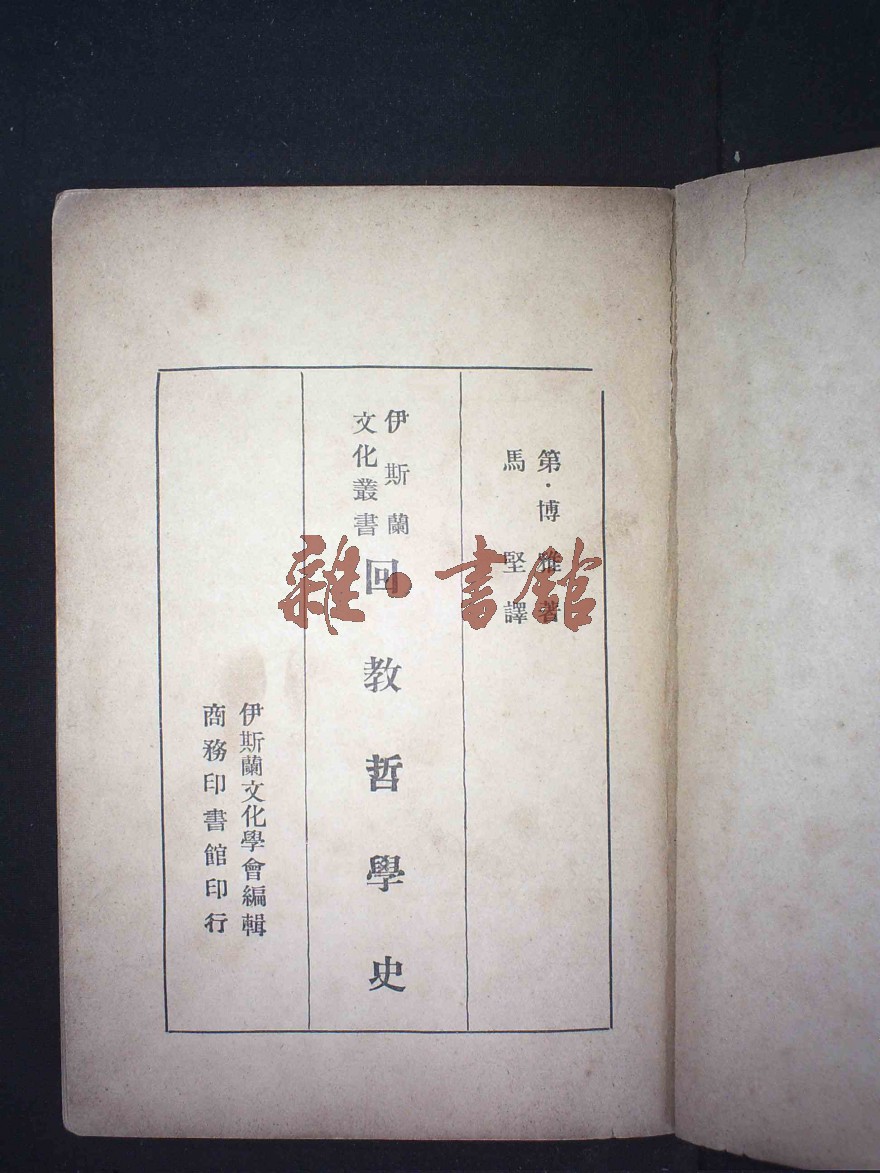 第·博雅著
馬堅譯
伊斯蘭
文化叢書
回教哲學史
伊斯蘭文化學會編輯
商務印書館印行
雜·書館